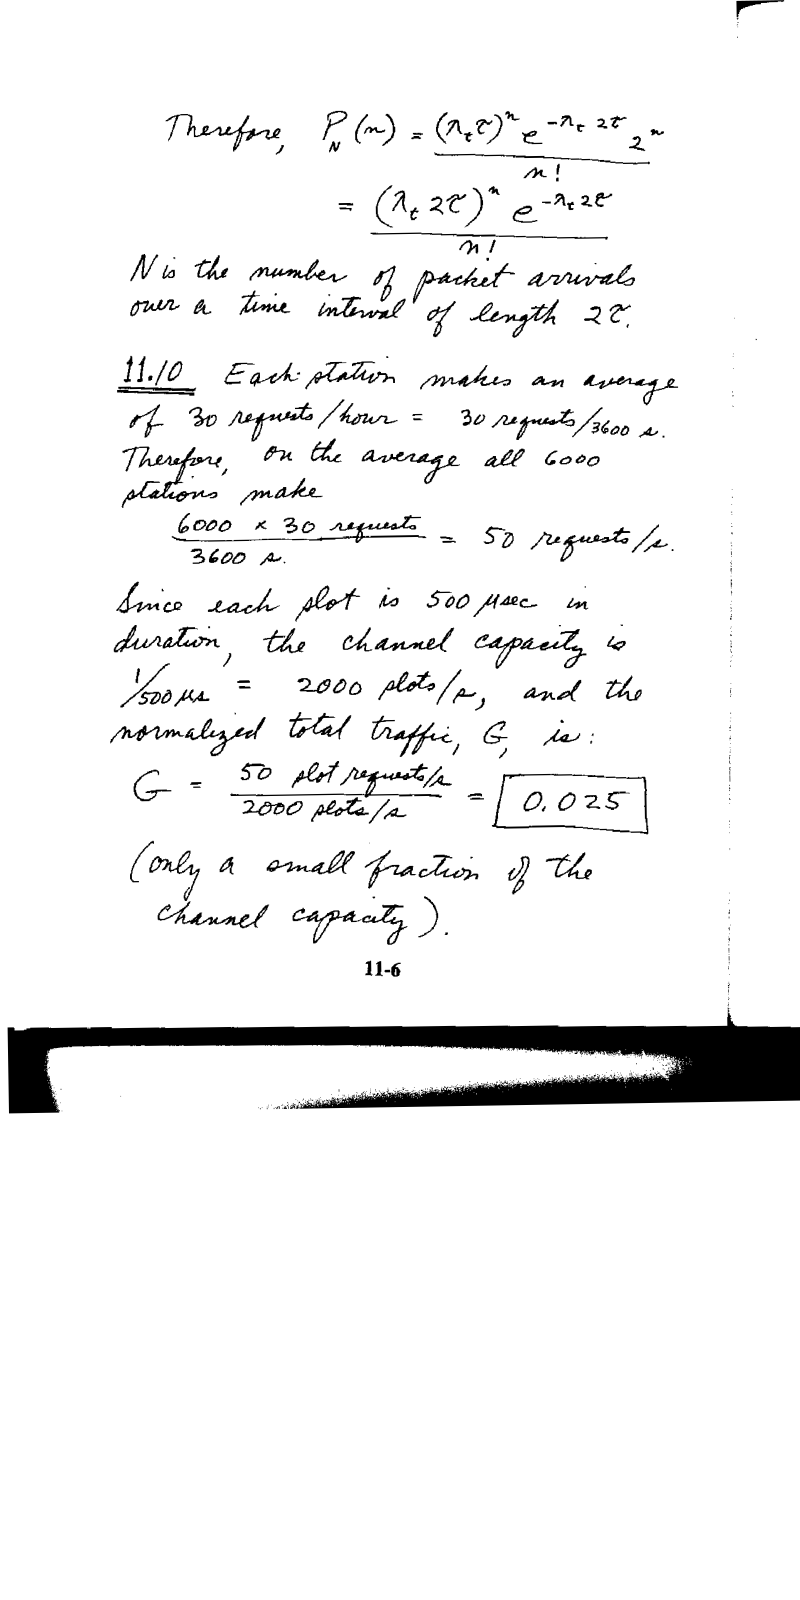 Therefore, P_N(n) = (λ_t τ)^n e^{-λ_t 2τ} 2^n / n!
= (λ_t 2τ)^n e^{-λ_t 2τ} / n!
N is the number of packet arrivals
over a time interval of length 2τ.
11.10 Each station makes an average
of 30 requests/hour = 30 requests/3600 s.
Therefore, on the average all 6000
stations make
6000 × 30 requests / 3600 s. = 50 requests/s.
Since each slot is 500 μsec in
duration, the channel capacity is
1/500 μs = 2000 slots/s, and the
normalized total traffic, G, is:
G = 50 slot requests/s / 2000 slots/s = 0.025
(only a small fraction of the
channel capacity).
11-6